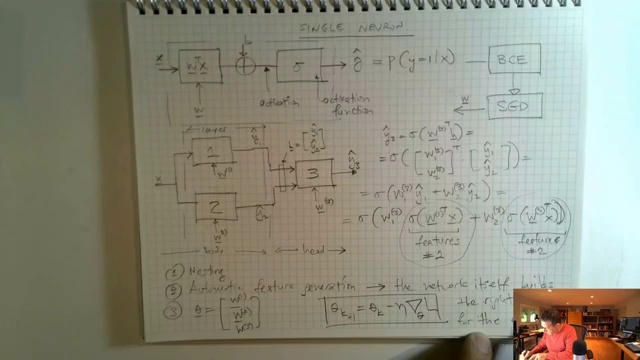 SINGLE NEURON
x → wᵀx → + → σ → ŷ = P(y=1|x)
b
w
BCE
SGD
w
activation
activation function
1
w⁽¹⁾
ŷ₁
h = [ŷ₁ ŷ₂]
x
2
w⁽²⁾
ŷ₂
3
w⁽³⁾
ŷ₃
body
head
ŷ₃ = σ(w⁽³⁾ᵀh) =
= σ([w₁⁽³⁾ w₂⁽³⁾]ᵀ [ŷ₁ ŷ₂]) =
= σ(w₁⁽³⁾ŷ₁ + w₂⁽³⁾ŷ₂) =
= σ(w₁⁽³⁾ σ(w⁽¹⁾ᵀx) + w₂⁽³⁾ σ(w⁽²⁾ᵀx))
features
features
#2
① Nesting
② Automatic feature generation → the network itself builds
the right
for the
③ θ = [w⁽¹⁾ w⁽²⁾ w⁽³⁾]
θₖ₊₁ = θₖ − η∇θ L